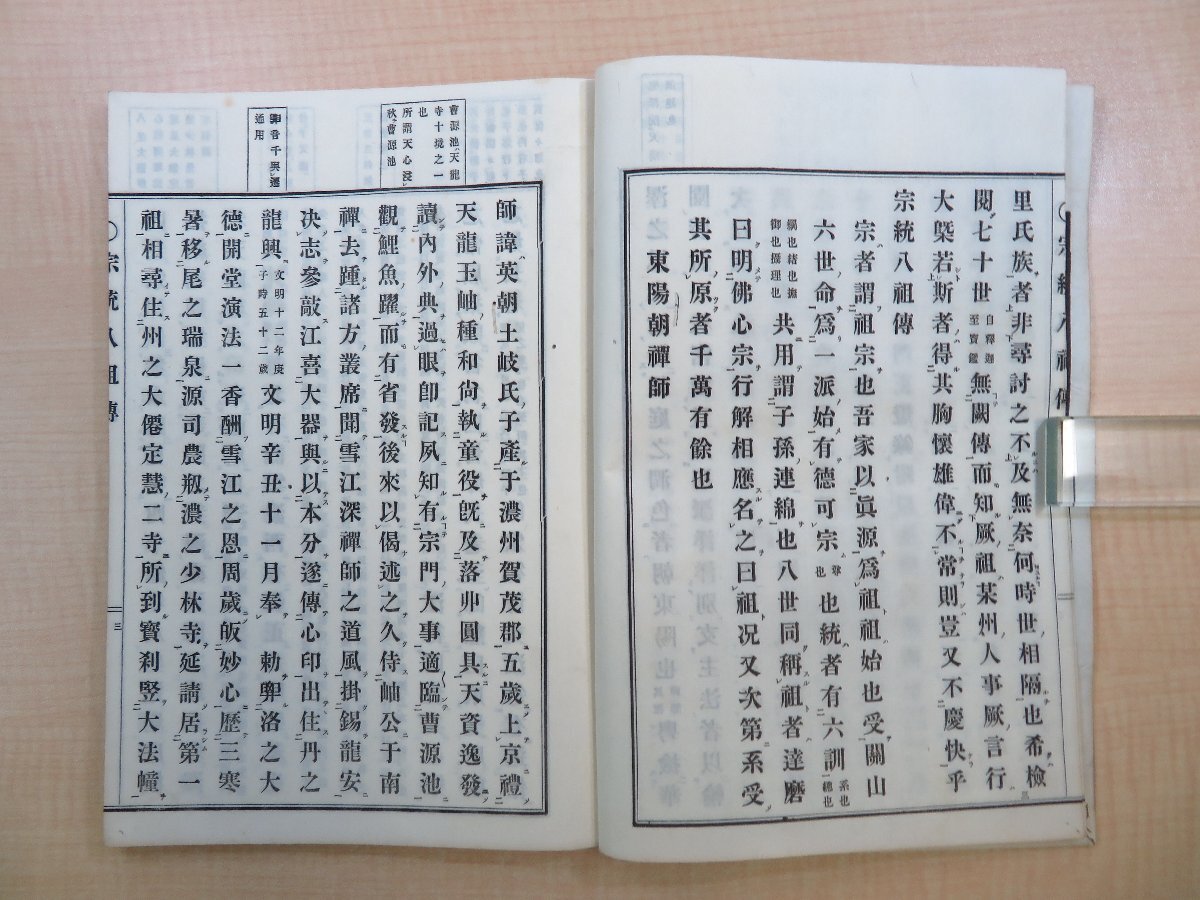 里氏族者非尋討之不及無奈何時世相隔也希檢
閱七十世自釋迦至寶鑑無闕傳而知厥祖某州人事厥言行
大槩若斯者得其胸懷雄偉不常則豈又不慶快乎
宗統八祖傳
宗者謂祖宗也吾家以眞源爲祖祖始也受關山
六世命爲一派始有德可宗尊也也統者有六訓系也總也
綱也緒也撫御也攝理也共用謂子孫連綿也八世同稱祖者達磨
曰明佛心宗行解相應名之曰祖况又次第系受
其所原者千萬有餘也
東陽朝禪師
宗統八祖傳
曹源池天龍
寺十境之一
也
所謂天心浸
秋曹源池
音千與遷
通用
師諱英朝土岐氏子產于濃州賀茂郡五歲上京禮
天龍玉岫種和尙執童役旣及落丱圓具天資逸發
讀內外典過眼卽記夙知有宗門大事適臨曹源池
觀鯉魚躍而有省發後來以偈述之久侍岫公于南
禪去踵諸方叢席聞雪江深禪師之道風掛錫龍安
决志參敲江喜大器與以本分遂傳心印出住丹之
龍興文明十二年庚子時五十二歲文明辛丑十一月奉勅洛之大
德開堂演法一香酬雪江之恩周歲皈妙心歷三寒
暑移尾之瑞泉源司農剏濃之少林寺延請居第一
祖相尋住州之大僊定慧二寺所到寶刹竪大法幢
宗統八祖傳
三